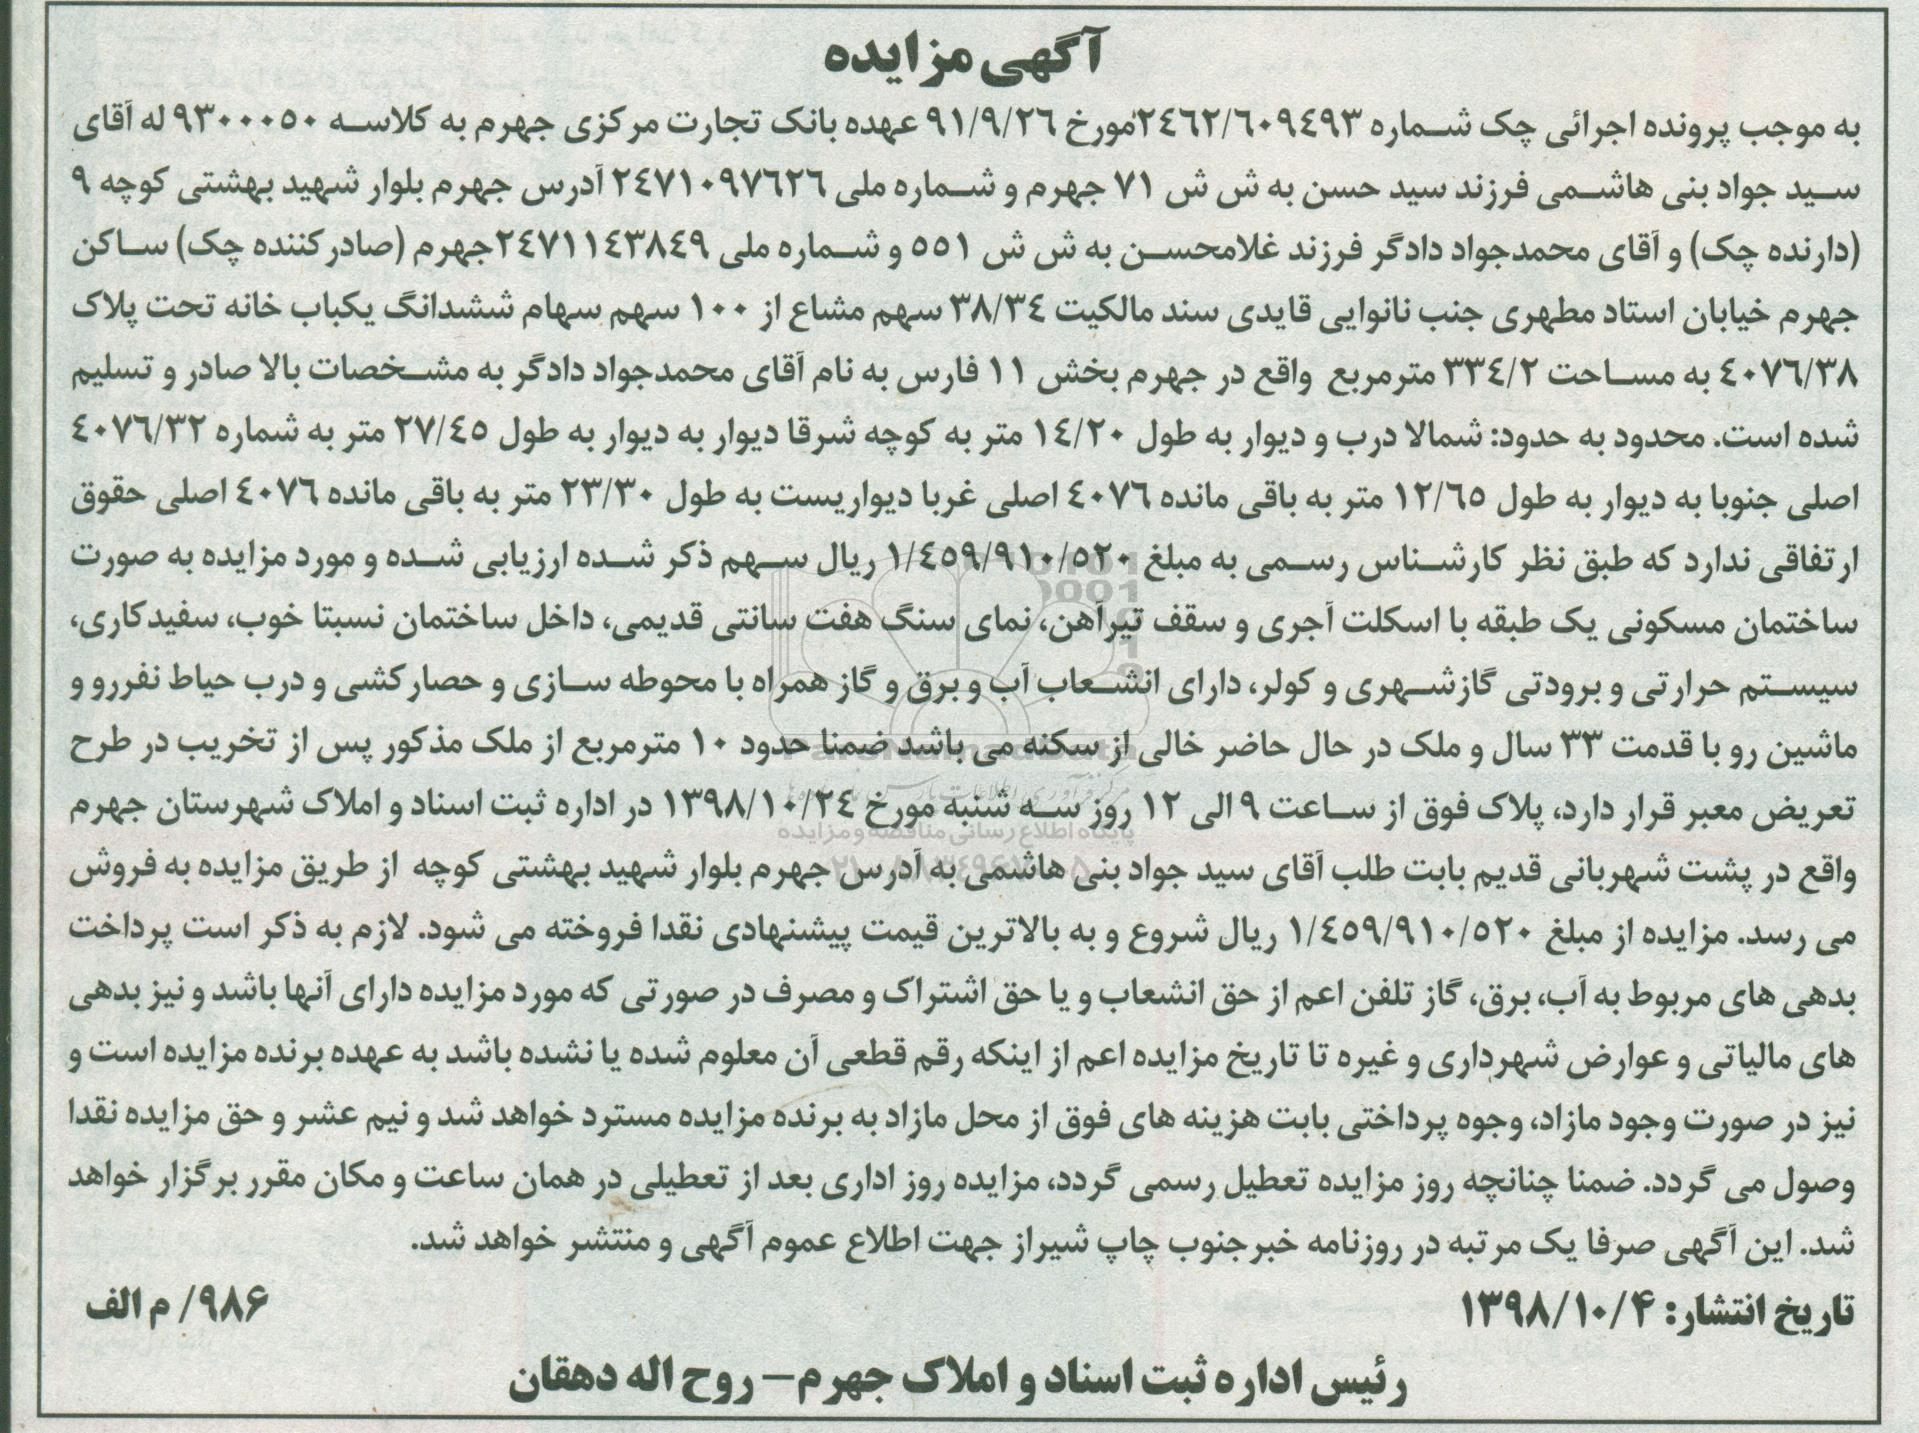 آگهی مزایده
به موجب پرونده اجرائی چک شماره ۲٤٦۲/٦۰۹٤۹۳ مورخ ۹۱/۹/۲٦ عهده بانک تجارت مرکزی جهرم به کلاسه ۹۳۰۰۰۵۰ له آقای
سید جواد بنی هاشمی فرزند سید حسن به ش ش ۷۱ جهرم و شماره ملی ۲٤۷۱۰۹۷٦۲٦ آدرس جهرم بلوار شهید بهشتی کوچه ۹
(دارنده چک) و آقای محمدجواد دادگر فرزند غلامحسن به ش ش ۵۵۱ و شماره ملی ۲٤۷۱۱٤۳۸٤۹جهرم (صادرکننده چک) ساکن
جهرم خیابان استاد مطهری جنب نانوایی قایدی سند مالکیت ۳۸/۳٤ سهم مشاع از ۱۰۰ سهم سهام ششدانگ یکباب خانه تحت پلاک
٤۰۷٦/۳۸ به مساحت ۳۳٤/۲ مترمربع واقع در جهرم بخش ۱۱ فارس به نام آقای محمدجواد دادگر به مشخصات بالا صادر و تسلیم
شده است. محدود به حدود: شمالا درب و دیوار به طول ۱٤/۲۰ متر به کوچه شرقا دیوار به دیوار به طول ۲۷/٤۵ متر به شماره ٤۰۷٦/۳۲
اصلی جنوبا به دیوار به طول ۱۲/٦۵ متر به باقی مانده ٤۰۷٦ اصلی غربا دیواریست به طول ۲۳/۳۰ متر به باقی مانده ٤۰۷٦ اصلی حقوق
ارتفاقی ندارد که طبق نظر کارشناس رسمی به مبلغ ۱/٤۵۹/۹۱۰/۵۲۰ ریال سهم ذکر شده ارزیابی شده و مورد مزایده به صورت
ساختمان مسکونی یک طبقه با اسکلت آجری و سقف تیرآهن، نمای سنگ هفت سانتی قدیمی، داخل ساختمان نسبتا خوب، سفیدکاری،
سیستم حرارتی و برودتی گازشهری و کولر، دارای انشعاب آب و برق و گاز همراه با محوطه سازی و حصارکشی و درب حیاط نفررو و
ماشین رو با قدمت ۳۳ سال و ملک در حال حاضر خالی از سکنه می باشد ضمنا حدود ۱۰ مترمربع از ملک مذکور پس از تخریب در طرح
تعریض معبر قرار دارد، پلاک فوق از ساعت ۹ الی ۱۲ روز سه شنبه مورخ ۱۳۹۸/۱۰/۲٤ در اداره ثبت اسناد و املاک شهرستان جهرم
واقع در پشت شهربانی قدیم بابت طلب آقای سید جواد بنی هاشمی به آدرس جهرم بلوار شهید بهشتی کوچه از طریق مزایده به فروش
می رسد. مزایده از مبلغ ۱/٤۵۹/۹۱۰/۵۲۰ ریال شروع و به بالاترین قیمت پیشنهادی نقدا فروخته می شود. لازم به ذکر است پرداخت
بدهی های مربوط به آب، برق، گاز تلفن اعم از حق انشعاب و یا حق اشتراک و مصرف در صورتی که مورد مزایده دارای آنها باشد و نیز بدهی
های مالیاتی و عوارض شهرداری و غیره تا تاریخ مزایده اعم از اینکه رقم قطعی آن معلوم شده یا نشده باشد به عهده برنده مزایده است و
نیز در صورت وجود مازاد، وجوه پرداختی بابت هزینه های فوق از محل مازاد به برنده مزایده مسترد خواهد شد و نیم عشر و حق مزایده نقدا
وصول می گردد. ضمنا چنانچه روز مزایده تعطیل رسمی گردد، مزایده روز اداری بعد از تعطیلی در همان ساعت و مکان مقرر برگزار خواهد
شد. این آگهی صرفا یک مرتبه در روزنامه خبرجنوب چاپ شیراز جهت اطلاع عموم آگهی و منتشر خواهد شد.
تاریخ انتشار: ۱۳۹۸/۱۰/۴
۹۸۶/ م الف
رئیس اداره ثبت اسناد و املاک جهرم– روح اله دهقان
پایگاه اطلاع رسانی مناقصه و مزایده